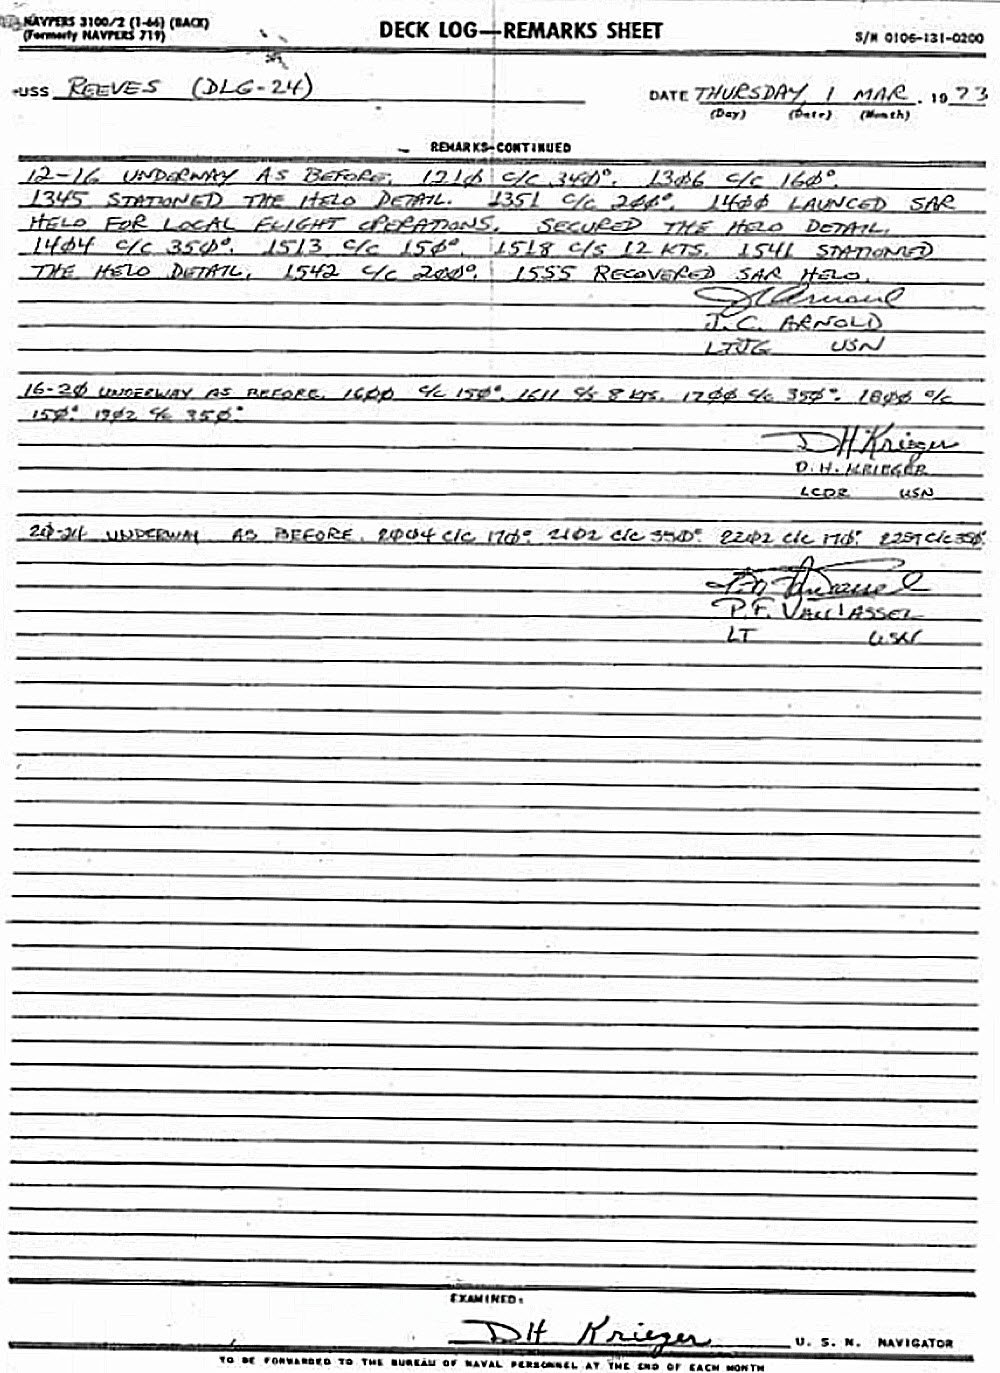 NAVPERS 3100/2 (1-66) (BACK)
(Formerly NAVPERS 719)
DECK LOG—REMARKS SHEET
S/N 0106-131-0200
USS REEVES (DLG-24)
DATE THURSDAY, 1 MAR, 1973
(Day) (Date) (Month)
REMARKS-CONTINUED
12-16 UNDERWAY AS BEFORE. 121Ø C/C 34Ø°. 13Ø6 C/C 16Ø°.
1345 STATIONED THE HELO DETAIL. 1351 C/C 2ØØ°. 14ØØ LAUNCED SAR
HELO FOR LOCAL FLIGHT OPERATIONS. SECURED THE HELO DETAIL.
14Ø4 C/C 35Ø°. 1513 C/C 15Ø°. 1518 C/S 12 KTS. 1541 STATIONED
THE HELO DETAIL. 1542 C/C 2ØØ°. 1555 RECOVERED SAR HELO.
J. C. ARNOLD
LTJG USN
16-2Ø UNDERWAY AS BEFORE. 16ØØ C/C 15Ø°. 1611 C/S 8 KTS. 17ØØ C/C 35Ø°. 18ØØ C/C
15Ø°. 19Ø2 C/C 35Ø°.
DH Krieger
D. H. KRIEGER
LCDR USN
2Ø-24 UNDERWAY AS BEFORE. 2ØØ4 C/C 17Ø°. 21Ø2 C/C 35Ø°. 22Ø2 C/C 17Ø°. 2257 C/C 35Ø°.
P. F. VAN TASSEL
LT USN
EXAMINED:
DH Krieger U. S. N. NAVIGATOR
TO BE FORWARDED TO THE BUREAU OF NAVAL PERSONNEL AT THE END OF EACH MONTH